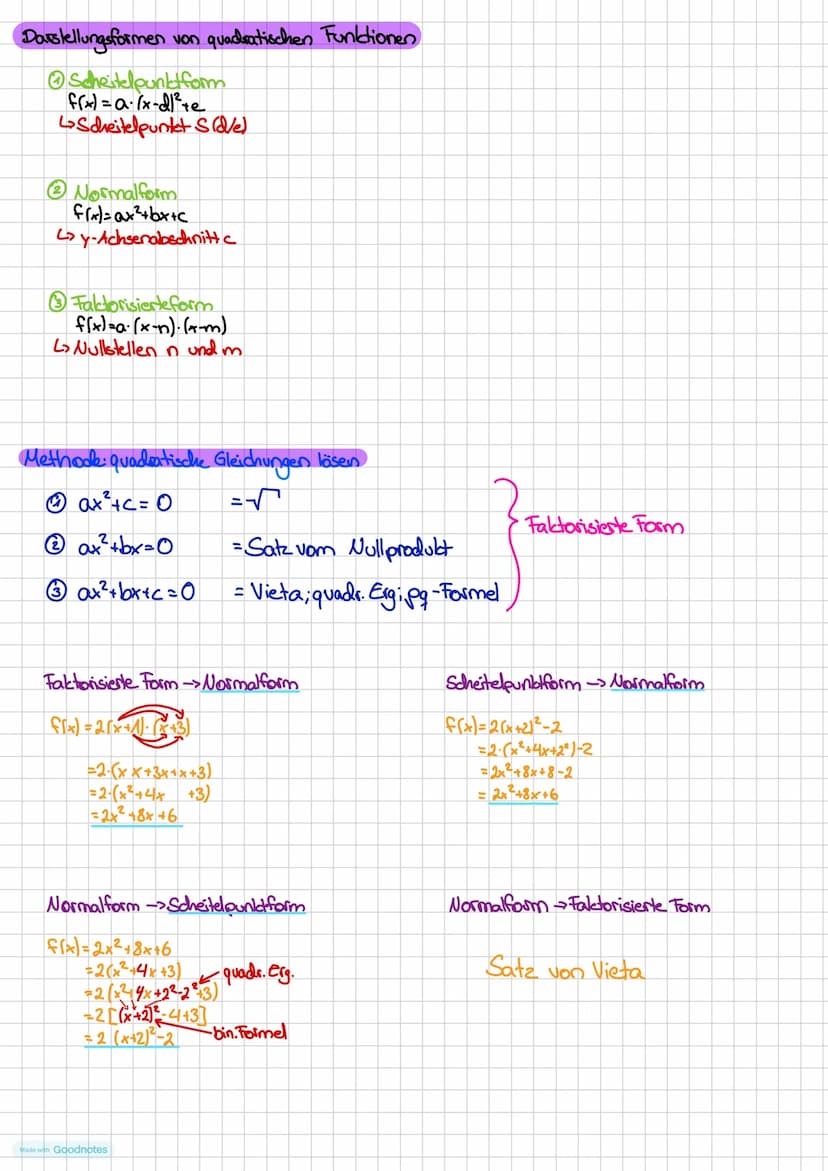 Darstellungsformen von quadratischen Funktionen
① Scheitelpunktform
f(x) = a·(x-d)²+e
↳ Scheitelpunkt S (d/e)
② Normalform
f(x)= ax²+bx+c
↳ y-Achsenabschnitt c
③ Faktorisierteform
f(x)=a·(x-n)·(x-m)
↳ Nullstellen n und m
Methode: quadratische Gleichungen lösen
① ax²+c= 0 =√
② ax²+bx=0 = Satz vom Nullprodukt
③ ax²+bx+c=0 = Vieta; quadr. Erg; pq-Formel
Faktorisierte Form
Faktorisierte Form → Normalform
f(x) = 2(x+1)·(x+3)
=2·(x x+3x+x+3)
=2·(x²+4x +3)
=2x²+8x+6
Scheitelpunktform → Normalform
f(x)= 2(x+2)²-2
=2·(x²+4x+2²)-2
=2x²+8x+8-2
= 2x²+8x+6
Normalform → Scheitelpunktform
f(x)= 2x²+8x+6
=2(x²+4x+3)
quadr. Erg.
=2(x²+4x+2²-2²+3)
=2[(x+2)²-4+3]
bin. Formel
= 2 (x+2)²-2
Normalform → Faktorisierte Form
Satz von Vieta
Made with Goodnotes